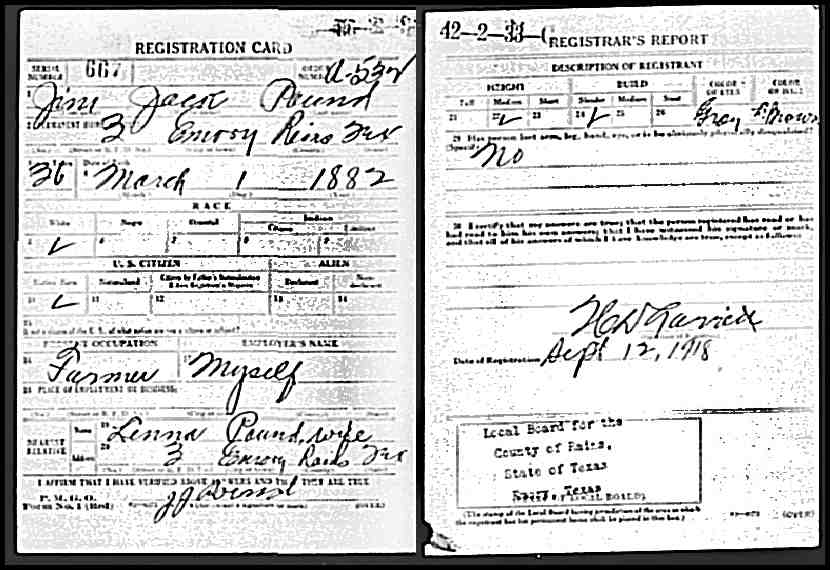 REGISTRATION CARD
SERIAL NUMBER 667 ORDER NUMBER A-532
Jim Jack Pound
3 Emory Rains Tex
36 March 1 1882
RACE
White Negro Oriental Indian
Citizen
U. S. CITIZEN ALIEN
Native Born Naturalized Citizen by Father's Naturalization Before Registrant's Majority Declarant Non-declarant
10 11 12 13 14
PRESENT OCCUPATION EMPLOYER'S NAME
Farmer Myself
PLACE OF EMPLOYMENT OR BUSINESS:
NEAREST RELATIVE Name Lenna Pound, wife
Address 3 Emory Rains Tex
I AFFIRM THAT I HAVE VERIFIED ABOVE ANSWERS AND THAT THEY ARE TRUE
P. M. G. O.
Form No. 1 (Red) J J Pound (OVER)
42-2-33-C
REGISTRAR'S REPORT
DESCRIPTION OF REGISTRANT
HEIGHT BUILD COLOR OF EYES COLOR OF HAIR
Tall Medium Short Slender Medium Stout
21 22 23 24 25 26 Gray Brown
29 Has person lost arm, leg, hand, eye, or is he obviously physically disqualified?
(Specify) No
30 I certify that my answers are true; that the person registered has read or has
had read to him his own answers; that I have witnessed his signature or mark,
and that all of his answers of which I have knowledge are true, except as follows:
Date of Registration Sept 12, 1918
Local Board for the
County of Rains,
State of Texas
Emory, Texas
(The stamp of the Local Board having jurisdiction of the area in which
the registrant has his permanent home shall be placed in this box.)
(OVER)